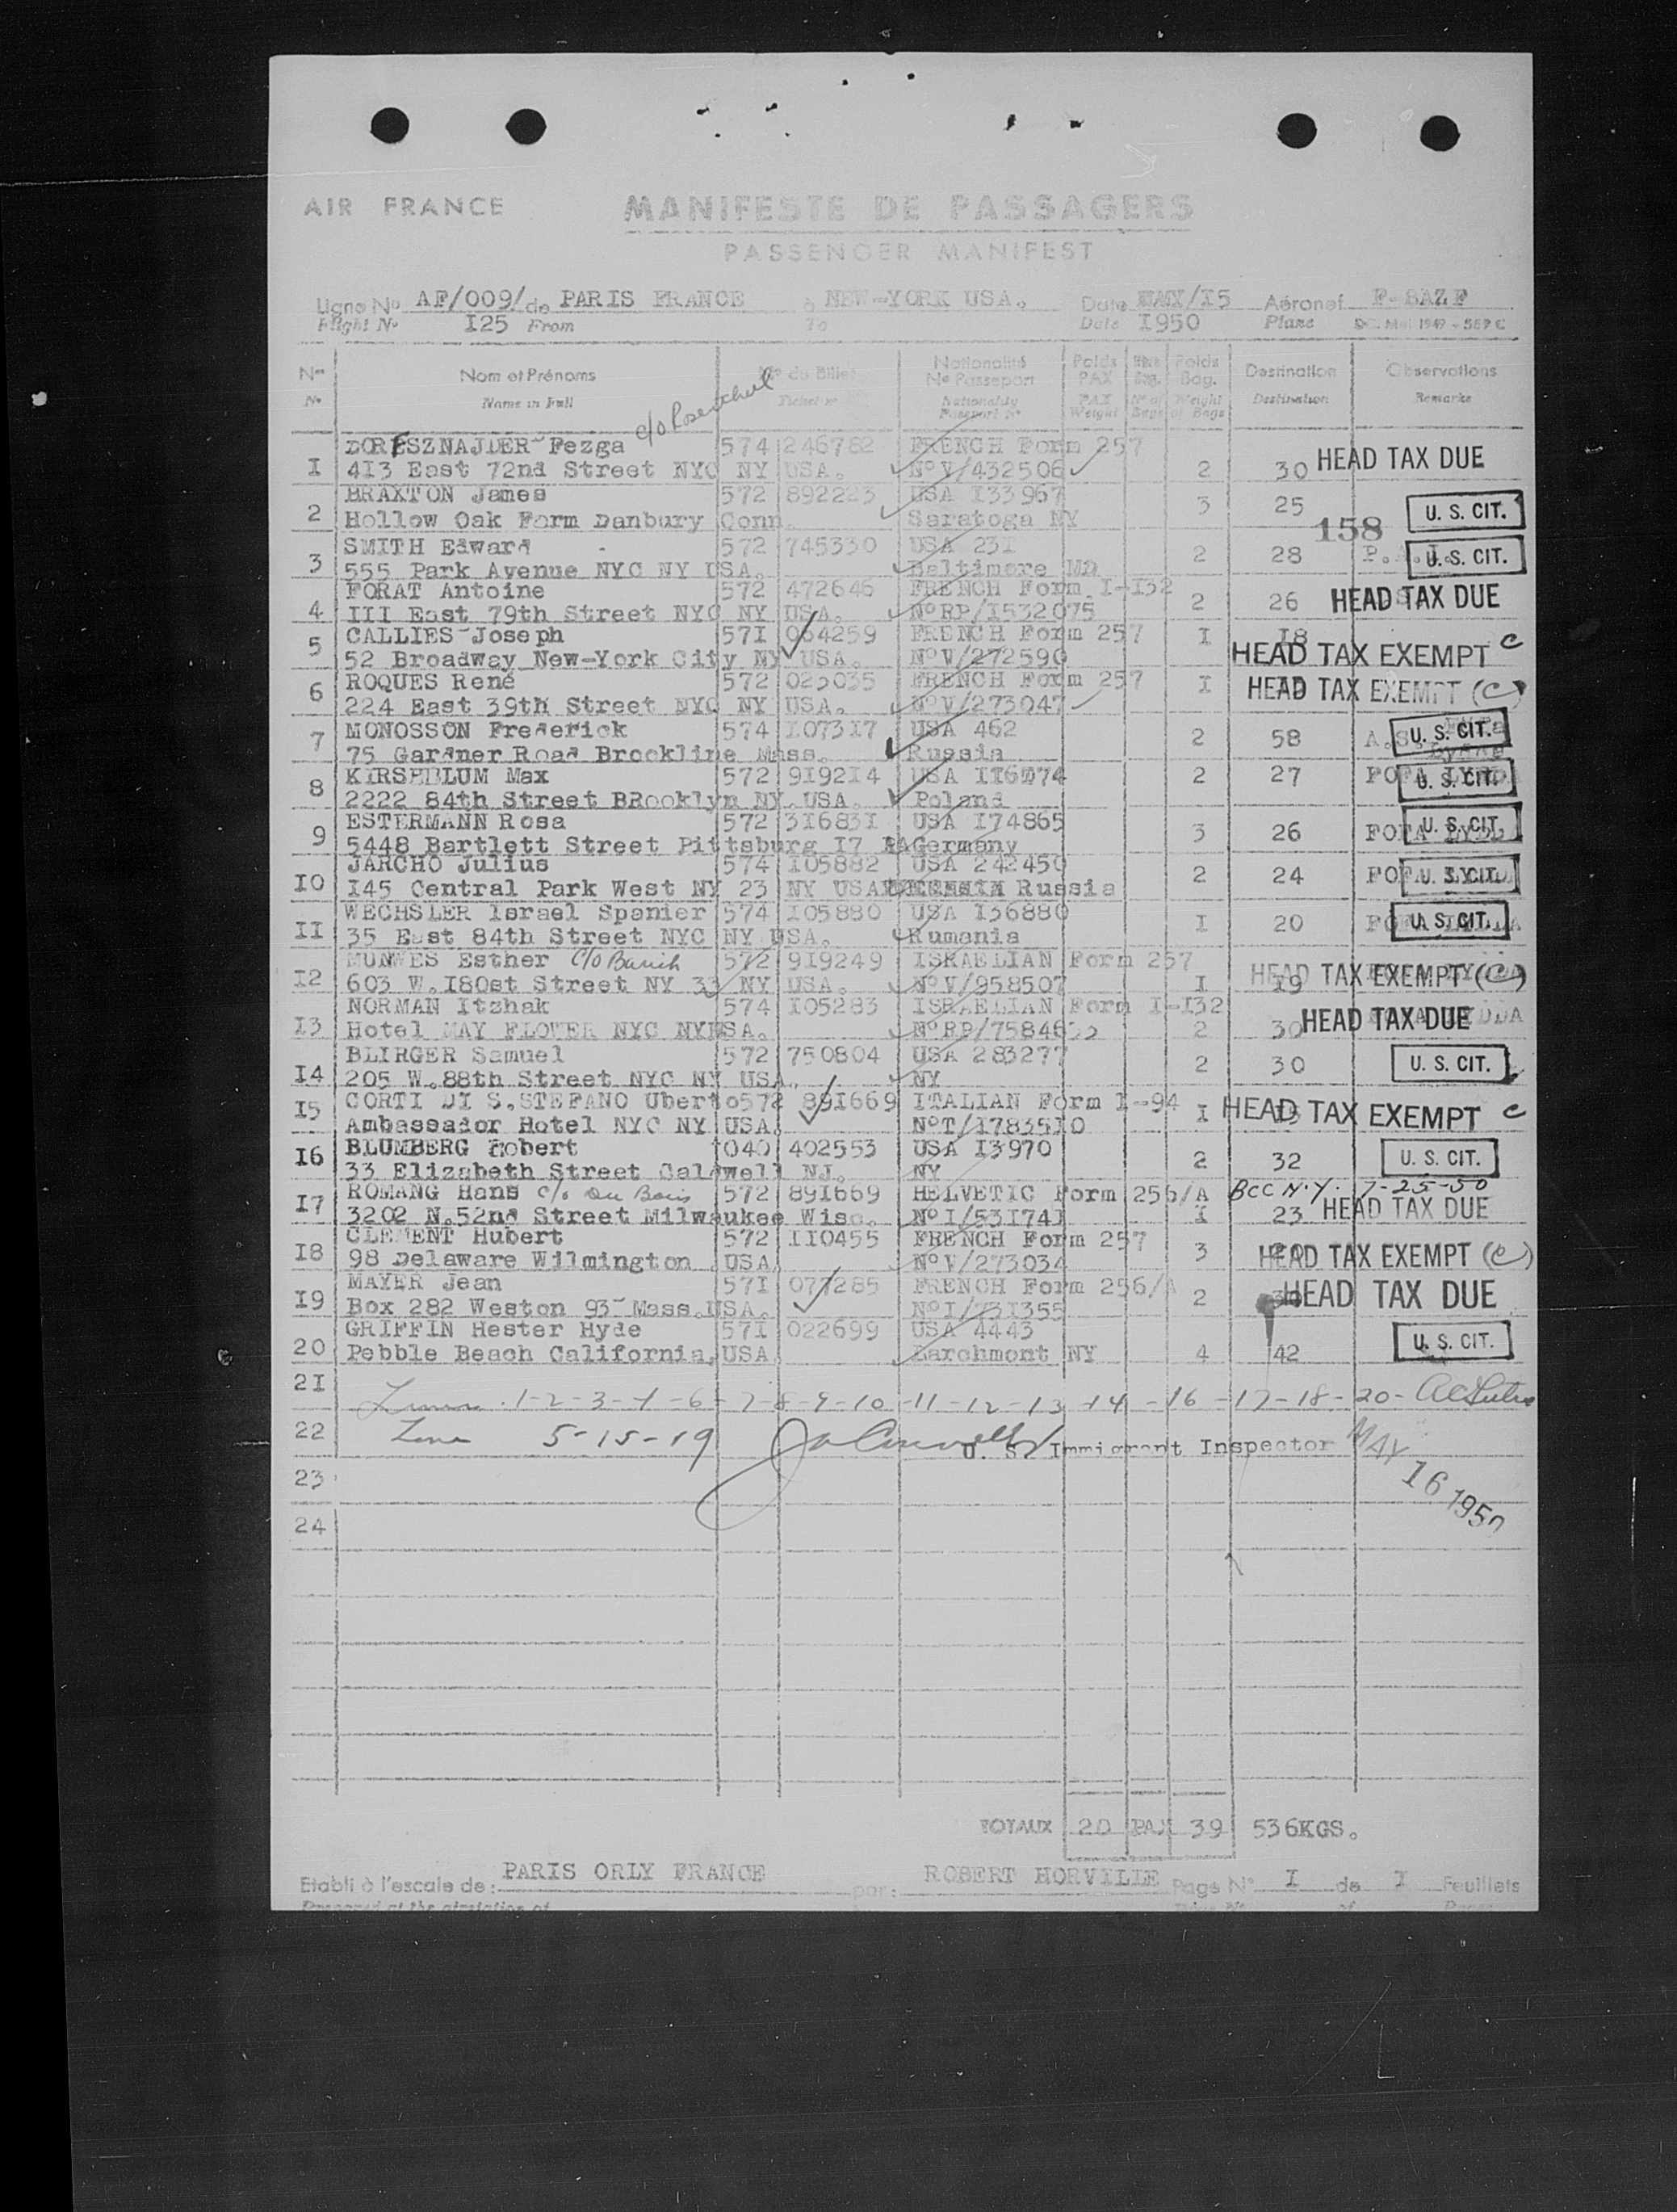 AIR FRANCE
MANIFESTE DE PASSAGERS
PASSENGER MANIFEST
Ligne No AF/009/ de PARIS FRANCE à NEW-YORK USA. Date MAY/I5 Aéronef F-BAZF
Flight No I25 From To Date I950 Plane
Nos Nom et Prénoms No du Billet Nationalité No Passeport Poids PAX Poids Bag. Destination Observations
No Name in Full Ticket No Nationality Passport No PAX Weight No of Bags Weight of Bags Destination Remarks
c/o
Fezga 574 246782 FRENCH Form 257
I 4I3 East 72nd Street NYC NY USA. No V/432506 2 30 HEAD TAX DUE
BRAXTON James 572 892223 USA I33967
2 Hollow Oak Farm Danbury Conn. Saratoga NY 3 25 U. S. CIT.
158
SMITH Edward 572 745330 USA 23I
3 555 Park Avenue NYC NY USA. Baltimore MD 2 28 U. S. CIT.
FORAT Antoine 572 472646 FRENCH Form I-I32
4 III East 79th Street NYC NY USA. No RP/I532075 2 26 HEAD TAX DUE
CALLIES Joseph 57I 064259 FRENCH Form 257 I I8
5 52 Broadway New-York City NY USA. No V/272590 HEAD TAX EXEMPT C
ROQUES René 572 025035 FRENCH Form 257
6 224 East 39th Street NYC NY USA. No V/273047 I HEAD TAX EXEMPT (C)
MONOSSON Frederick 574 I07317 USA 462
7 75 Gardner Road Brockline Mass. Russia 2 58 U. S. CIT.
KIRSHBLUM Max 572 9I92I4 USA
8 2222 84th Street BRooklyn NY. USA. Poland 2 27 U. S. CIT.
ESTERMANN Rosa 572 3I683I USA I74865
9 5448 Bartlett Street Pittsburg I7 PA Germany 3 26 U. S. CIT.
JARCHO Julius 574 I05882 USA 242450
I0 I45 Central Park West NY 23 NY USA Russia 2 24 U. S. CIT.
WECHSLER Israel Spanier 574 I05880 USA I36880
II 35 East 84th Street NYC NY USA. Rumania I 20 U. S. CIT.
MUNVES Esther c/o 572 9I9249 ISRAELIAN Form 257
I2 603 W.I80st Street NY 33 NY USA. No V/958507 I I9 HEAD TAX EXEMPT (C)
NORMAN Itzhak 574 I05283 ISRAELIAN Form I-I32
I3 Hotel MAY FLOWER NYC NY USA. 2 30 HEAD TAX DUE
BLIRGER Samuel 572 750804 USA 283277
I4 205 W.88th Street NYC NY USA. NY 2 30 U. S. CIT.
CORTI DI S.STEFANO Uberto 572 89I669 ITALIAN Form I-94
I5 Ambassador Hotel NYC NY USA. No T/I7835I0 I I5 HEAD TAX EXEMPT C
BLUMBERG Robert 040 402553 USA I3970
I6 33 Elizabeth Street Caldwell NJ. NY 2 32 U. S. CIT.
ROMANG Hans c/o Du Bois 572 89I669 HELVETIC Form 256/A BCC N.Y. 7-25-50
I7 3202 N.52nd Street Milwaukee Wisc. No I/53I74I I 23 HEAD TAX DUE
CLEMENT Hubert 572 II0455 FRENCH Form 257
I8 98 Delaware Wilmington USA No V/273034 3 HEAD TAX EXEMPT (C)
MAYER Jean 57I 077285 FRENCH Form 256/A
I9 Box 282 Weston 93 Mass.USA. No I/73I355 2 HEAD TAX DUE
GRIFFIN Hester Hyde 57I 022699 USA 4443
20 Pebble Beach California, USA Larchmont NY 4 42 U. S. CIT.
2I 1-2-3-4-6-7-8-9-10-11-12-13-14-16-17-18-20-
22 5-15-19 U. S. Immigrant Inspector MAY 16 1950
23
24
TOTAUX 20 PAX 39 536KGS.
Etabli à l'escale de: PARIS ORLY FRANCE par: ROBERT HORVILLE Page No I de I Feuillets